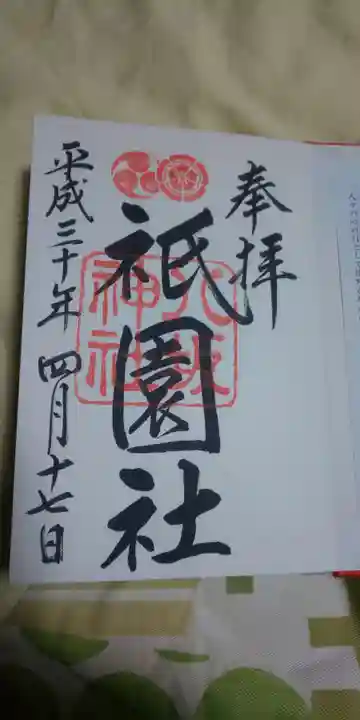 奉拝
祇園社
八坂
神社
平成三十年 四月十七日